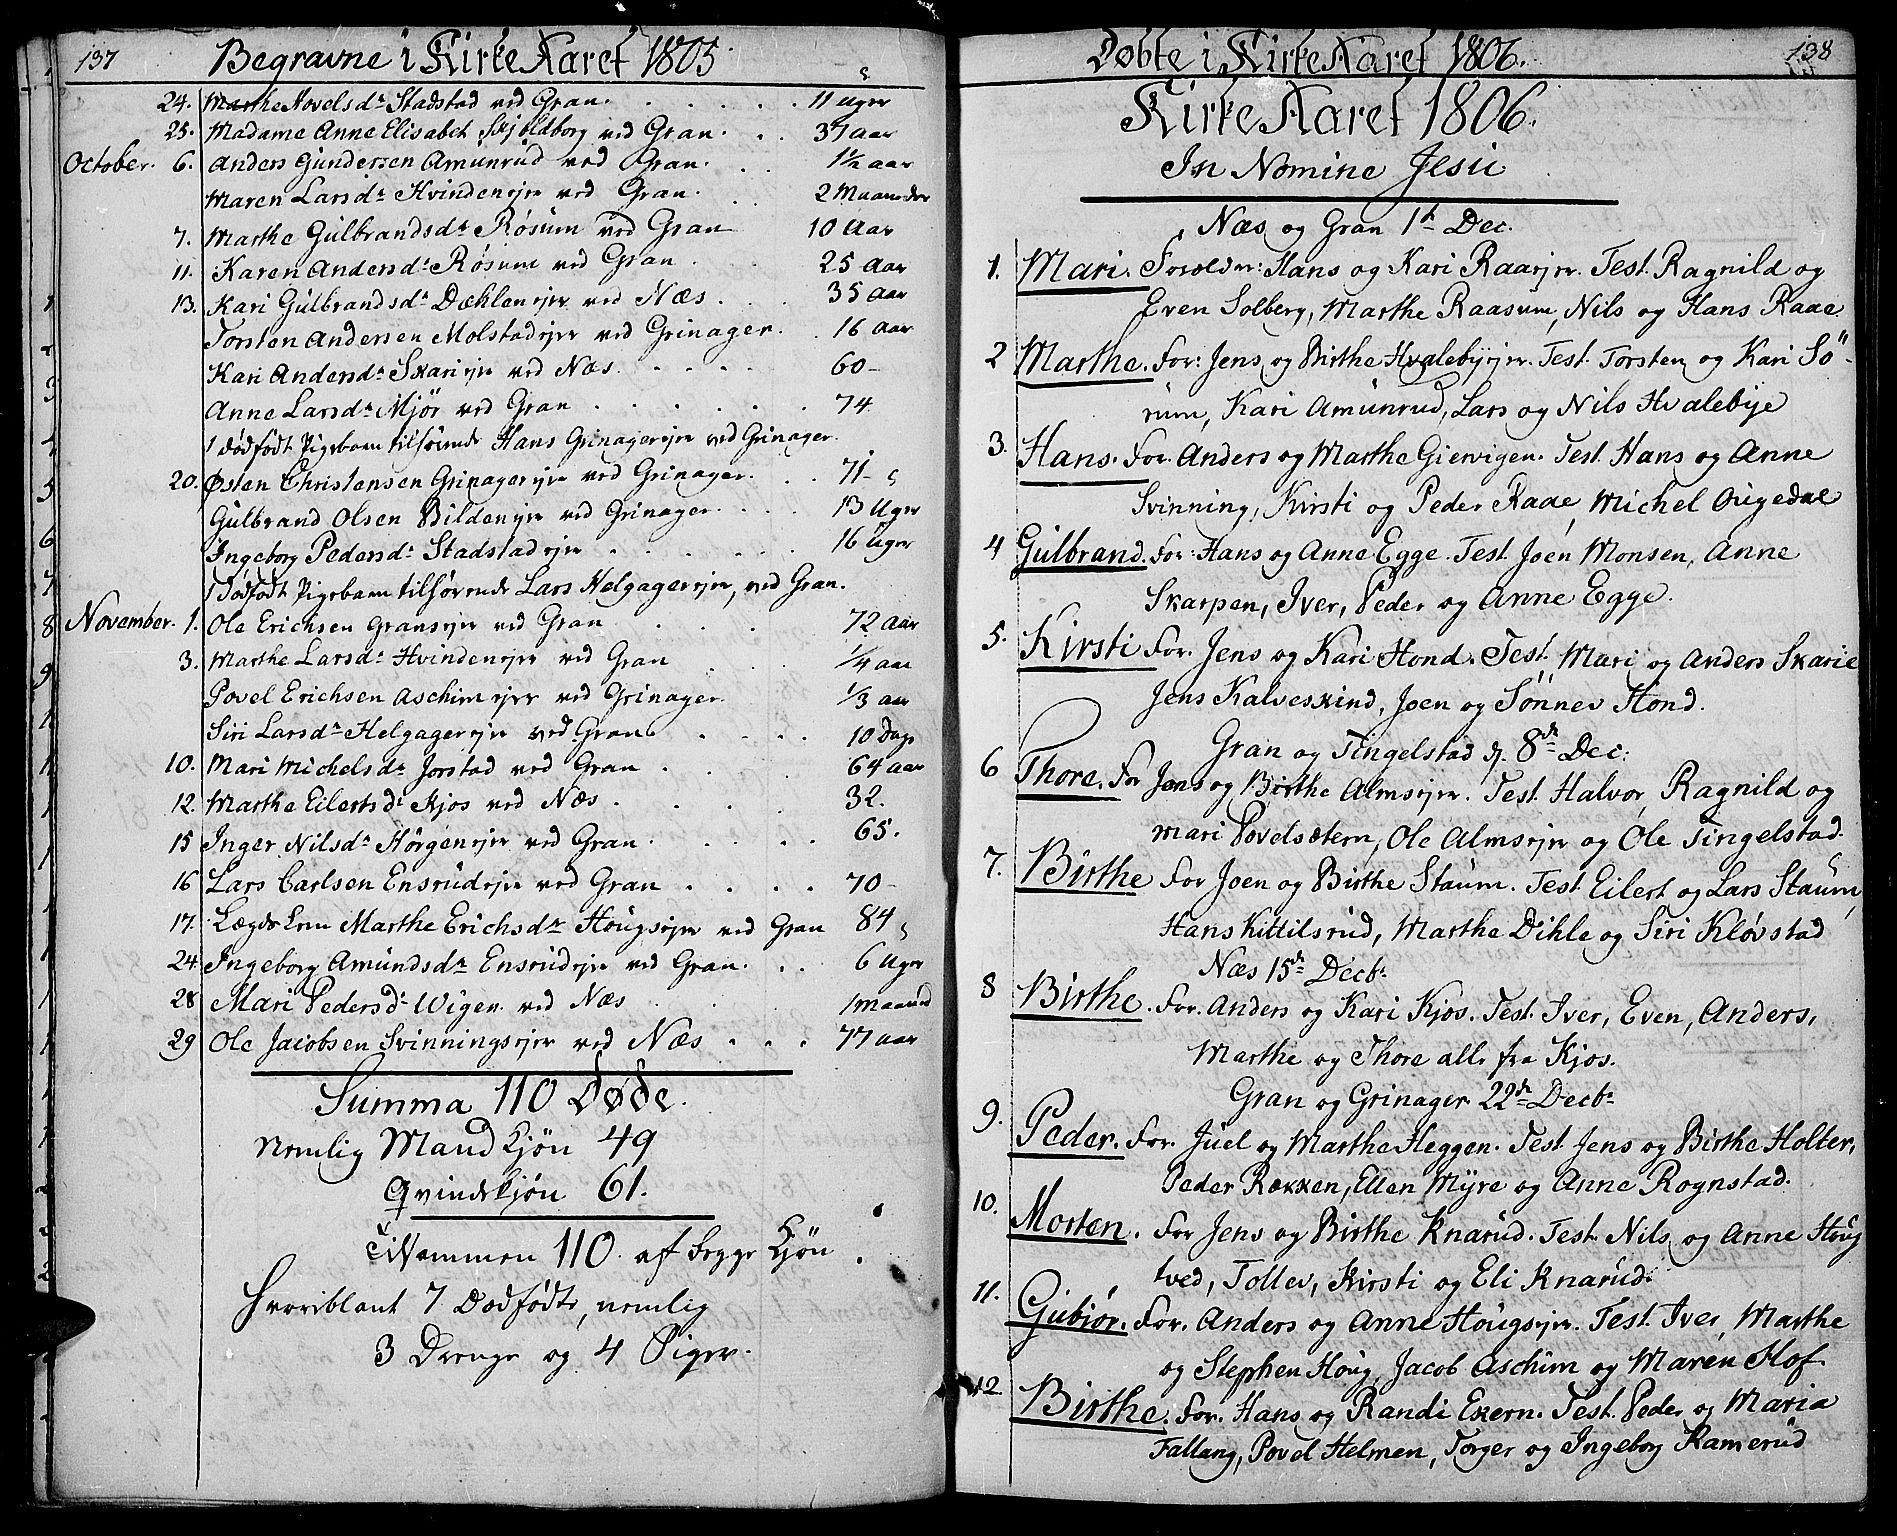 137 Begravne i Kirke Aaret 1805
24. Marthe Hovelsdr. Stadstad ved Gran. 11 Uger
25. Madame Anne Elisabet Skjoldborg ved Gran. 37 aar
October. 6. Anders Gundersen Amunrud ved Gran. 1½ aar
Maren Larsdr. Hvindenejer ved Gran. 2 Maaneder
7. Marthe Gulbrandsdr. Røsum ved Gran 10 Aar
11. Karen Andersdr. Røsum ved Gran 25 Aar
13. Kari Gulbrandsdr. Dæhlenejer ved Næs. 35 Aar
Torsten Andersen Molstadejer ved Grinager. 16 aar
Kari Andersdr. Skariejer ved Næs. 60-
Anne Larsdr. Mjör ved Gran 74.
1 dödfödt Pigebarn tilhörende Hans Grinagerejer ved Grinager.
20. Østen Christensen Grinagerejer ved Grinager. 71-
Gulbrand Olsen Bildenejer ved Grinager. 13 Uger
Ingeborg Pedersdr. Stadstadejer 16 Uger
1 dödfödt Pigebarn tilhörende Lars Helgagerejer, ved Gran.
November. 1. Ole Erichsen Gransejer ved Gran 72 Aar
3. Marthe Larsdr. Hvindenejer ved Gran ¼ aar
Povel Erichsen Aschimejer ved Grinager. ⅓ aar
Siri Larsdr. Helgagerejer ved Gran 10 Dage
10. Mari Michelsdr. Jorstad ved Gran 64 aar
12. Marthe Eilertsdr. Kjos ved Næs. 32.
15 Inger Nilsdr. Horgenejer ved Gran. 65.
16 Lars Carlsen Ensrudejer ved Gran 70-
17. Lægdslem Marthe Erichsdr. Hougsejer ved Gran 84
24. Ingeborg Amundsdr. Ensrudejer ved Gran. 6 Uger
28 Mari Pedersdr. Wigen ved Næs 1 maaned
29 Ole Jacobsen Svinningsejer ved Næs 77 aar
Summa 110 Døde.
Nemlig Mandkjön 49
Qvindekjön 61.
Tilsammen 110. af begge Kjön.
hvoriblant 7 Dødfödte, nemlig
3 Drenge og 4 Piger.
Døbte i Kirke Aaret 1806. 138
Kirke Aaret 1806.
In Nomine Jesu
Næs og Gran 1de Dec.
1. Mari. Forældre: Hans og Kari Raaejer. Test. Ragnild og
Even Solberg, Marthe Raasum, Nils og Hans Raae
2 Marthe. For: Jens og Birthe Hvalebyejer. Test. Torsten og Kari Sö-
rum, Kari Amunrud, Lars og Nils Hvalebye
3. Hans. For. Anders og Marthe Giervigen. Test. Hans og Anne
Svinning, Kirsti og Peder Raae, Michel Ougedal
4 Gulbrand. For: Hans og Anne Egge. Test. Joen Monsen, Anne
Skarpen, Iver, Peder og Anne Egge.
5. Kirsti For. Jens og Kari Hond. Test. Mari og Anders Skarie
Jens Kalveskind, Joen og Sönnev Hond.
Gran og Tingelstad d. 8de Dec:
6 Thore. For Jens og Birthe Almsejer. Test. Halvor, Ragnild og
Mari Povelsætern, Ole Almsejer og Ole Tingelstad.
7. Birthe For Joen og Birthe Staum. Test. Eilert og Lars Staum,
Hans Kittilsrud, Marthe Dihle og Siri Kløvstad
Næs 15de Decbr.
8 Birthe. For. Anders og Kari Kjos. Test. Iver, Even, Anders,
Marthe og Thore alle fra Kjos.
Gran og Grinager 22de Decbr.
9. Peder. For. Juel og Marthe Heggen. Test. Jens og Birthe Holter,
Peder Rækken, Ellen Myre og Anne Rognstad.
10. Morten. For Jens og Birthe Knarud. Test. Nils og Anne Houg
tved, Tollev, Kirsti og Eli Knarud.
11. Gubiør. For. Anders og Anne Hougsejer. Test. Iver, Marthe
og Stephen Houg, Jacob Aschim og Maren Hof.
12 Birthe. For. Hans og Randi Ekern. Test. Peder og Maria
Fallang, Povel Helmen, Torger og Ingeborg Ramerud